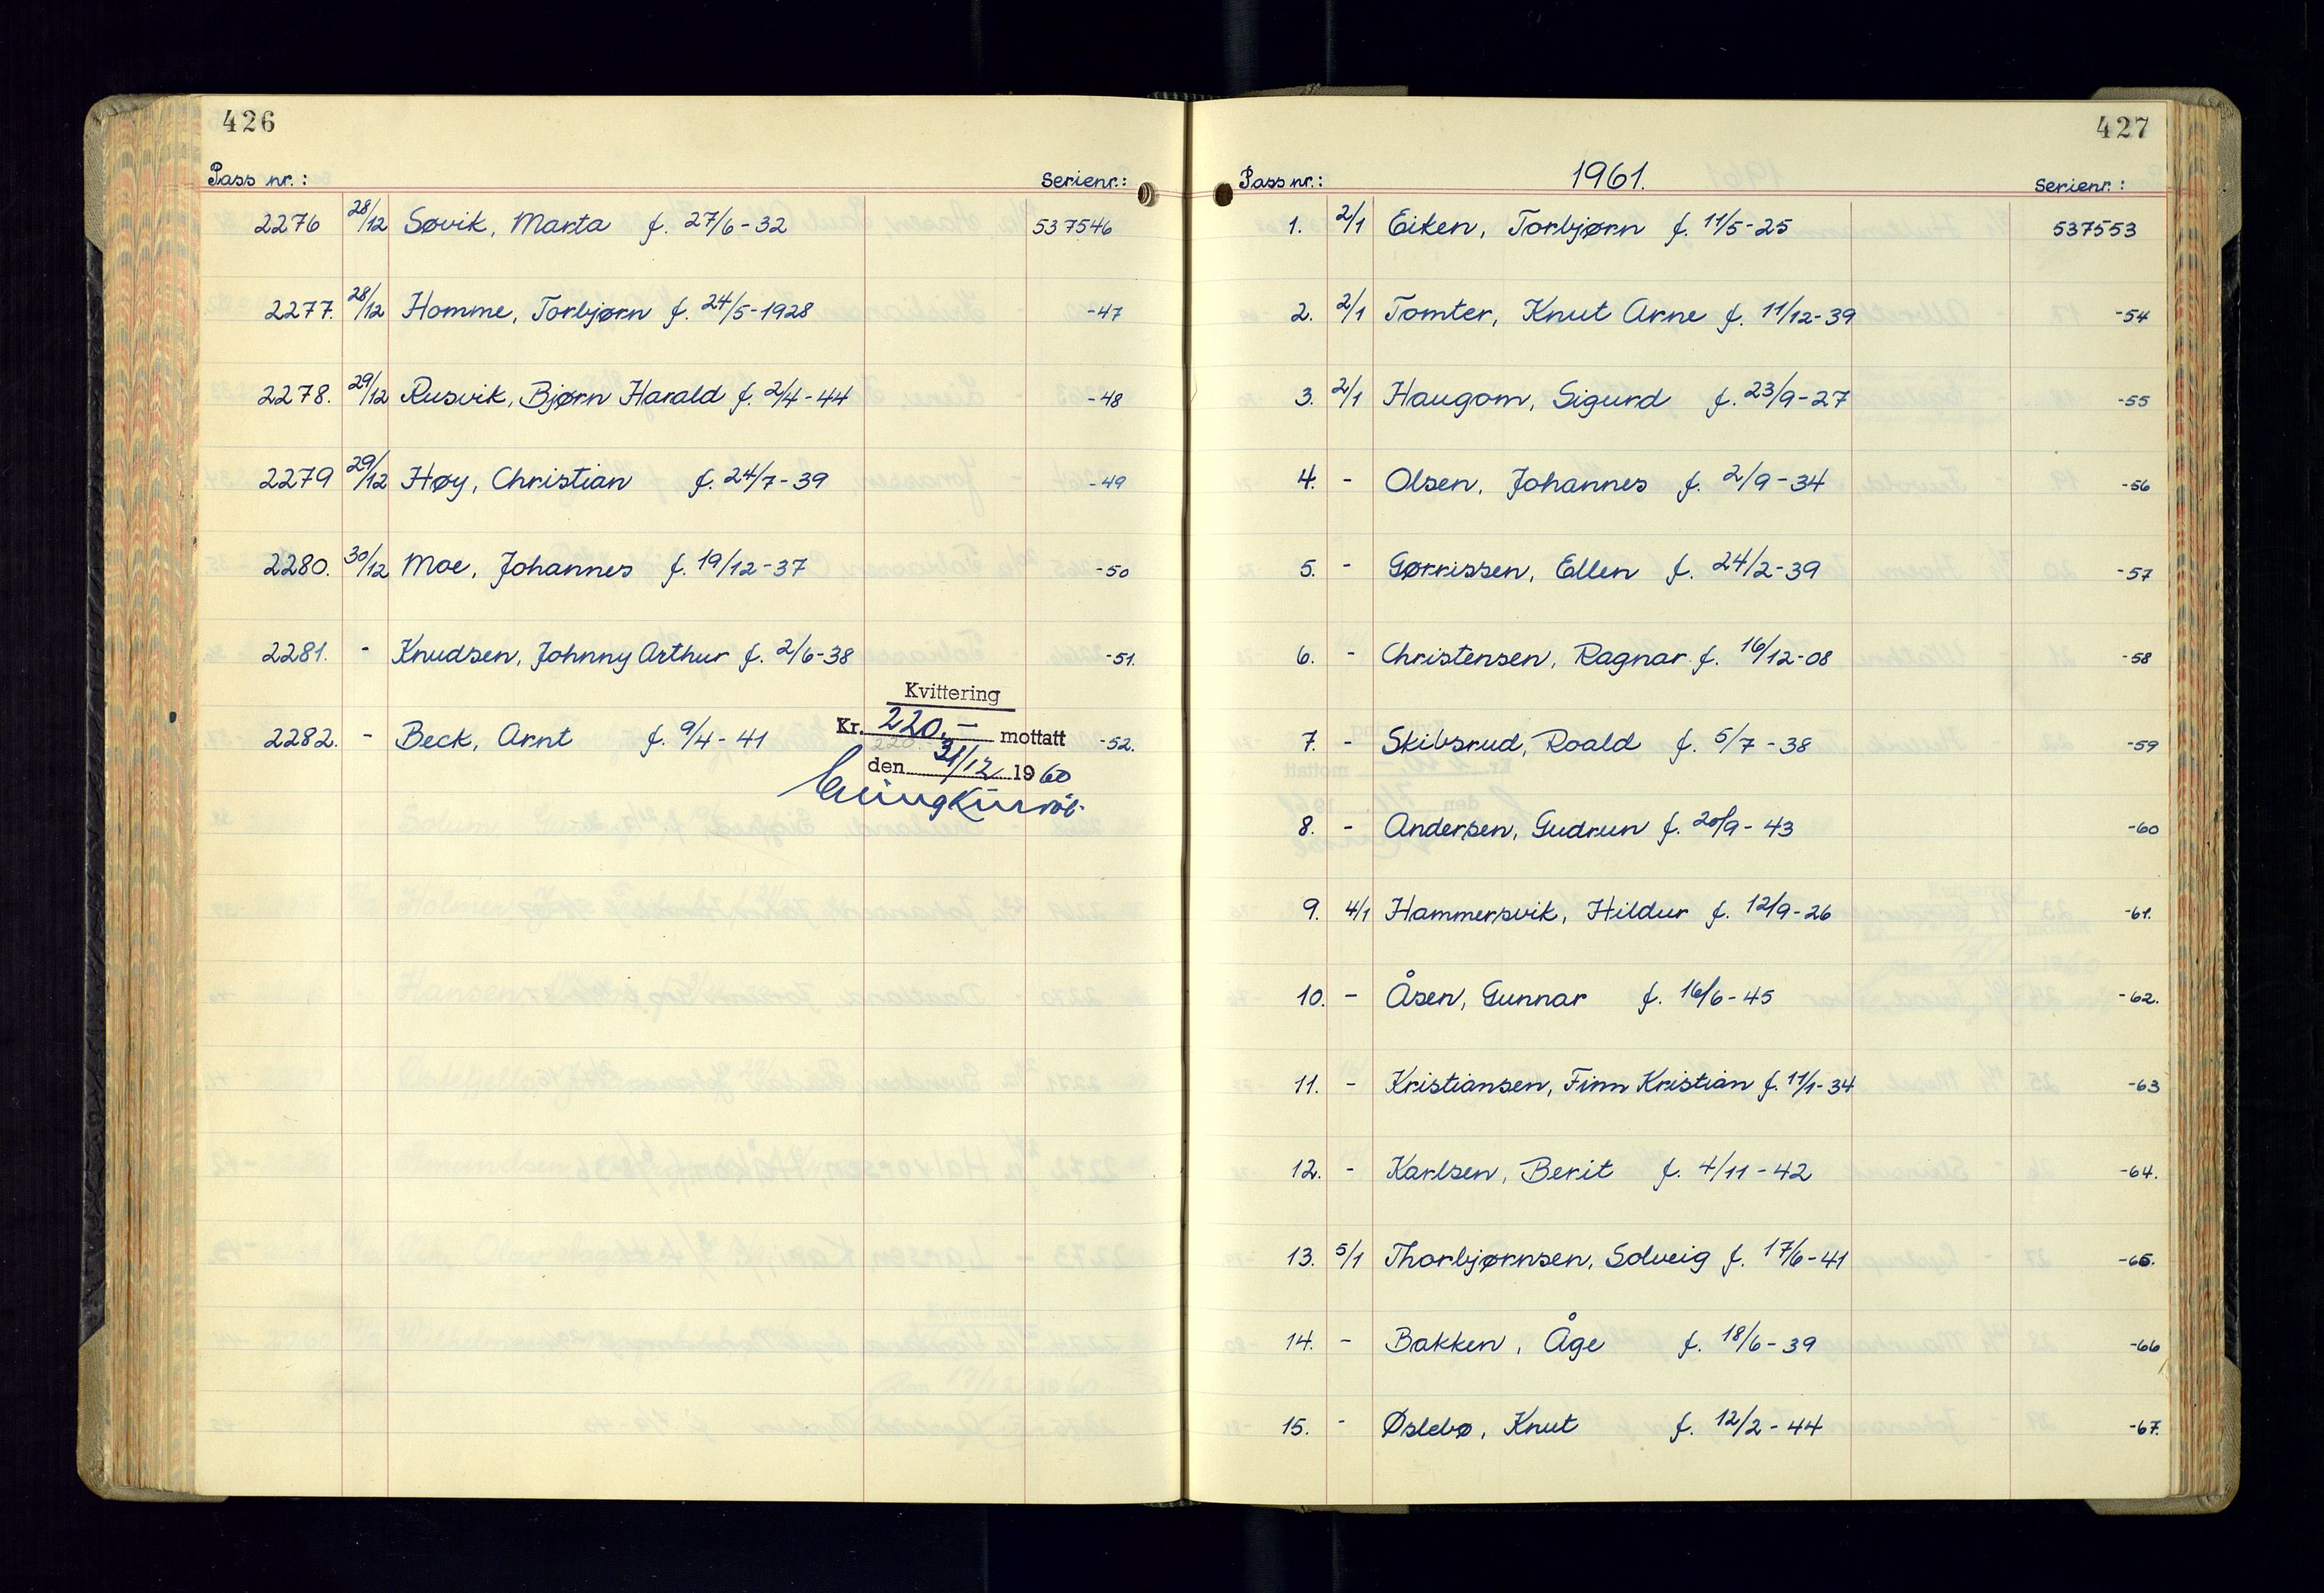 426
Pass nr.: Serienr.:
2276 28/12 Søvik, Marta f. 27/6-32 537546
2277. 28/12 Homme, Torbjørn f. 24/5-1928 -47
2278. 29/12 Rusvik, Bjørn Harald f. 2/4-44 -48
2279 29/12 Høy, Christian f. 24/7-39 -49
2280. 30/12 Moe, Johannes f. 19/12-37 -50
2281. - Knudsen, Johnny Arthur f. 2/6-38 -51.
2282. - Beck, Arnt f. 9/4-41 -52.
Kvittering
Kr. 220,- mottatt
den 31/12 1960
427
1961.
Pass nr.: Serienr.:
1. 2/1 Eiken, Torbjørn f. 11/5-25 537553
2. 2/1 Tomter, Knut Arne f. 11/12-39 -54
3. 2/1 Haugom, Sigurd f. 23/9-27 -55
4. - Olsen, Johannes f. 2/9-34 -56
5. - Gørrissen, Ellen f. 24/2-39 -57
6. - Christensen, Ragnar f. 16/12-08 -58
7. - Skibsrud, Roald f. 5/7-38 -59
8. - Andersen, Gudrun f. 20/9-43 -60
9. 4/1 Hammersvik, Hildur f. 12/9-26 -61.
10. - Åsen, Gunnar f. 16/6-45 -62.
11. - Kristiansen, Finn Kristian f. 11/1-34 -63
12. - Karlsen, Berit f. 4/11-42 -64.
13. 5/1 Thorbjørnsen, Solveig f. 17/6-41 -65.
14. - Bakken, Åge f. 18/6-39 -66
15. - Øslebø, Knut f. 12/2-44 -67.